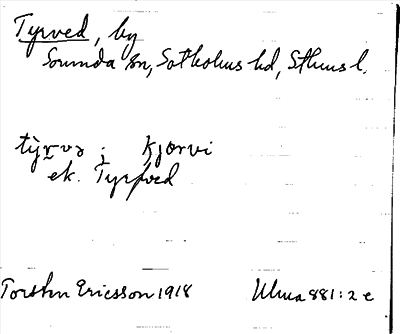 Tyrved, by
Sorunda sn, Sotholms hd, Sthlms l.
tỳrvə i Kjorvi
ek. Tyrfved
Torsten Ericsson 1918 Ulma 881:2 c